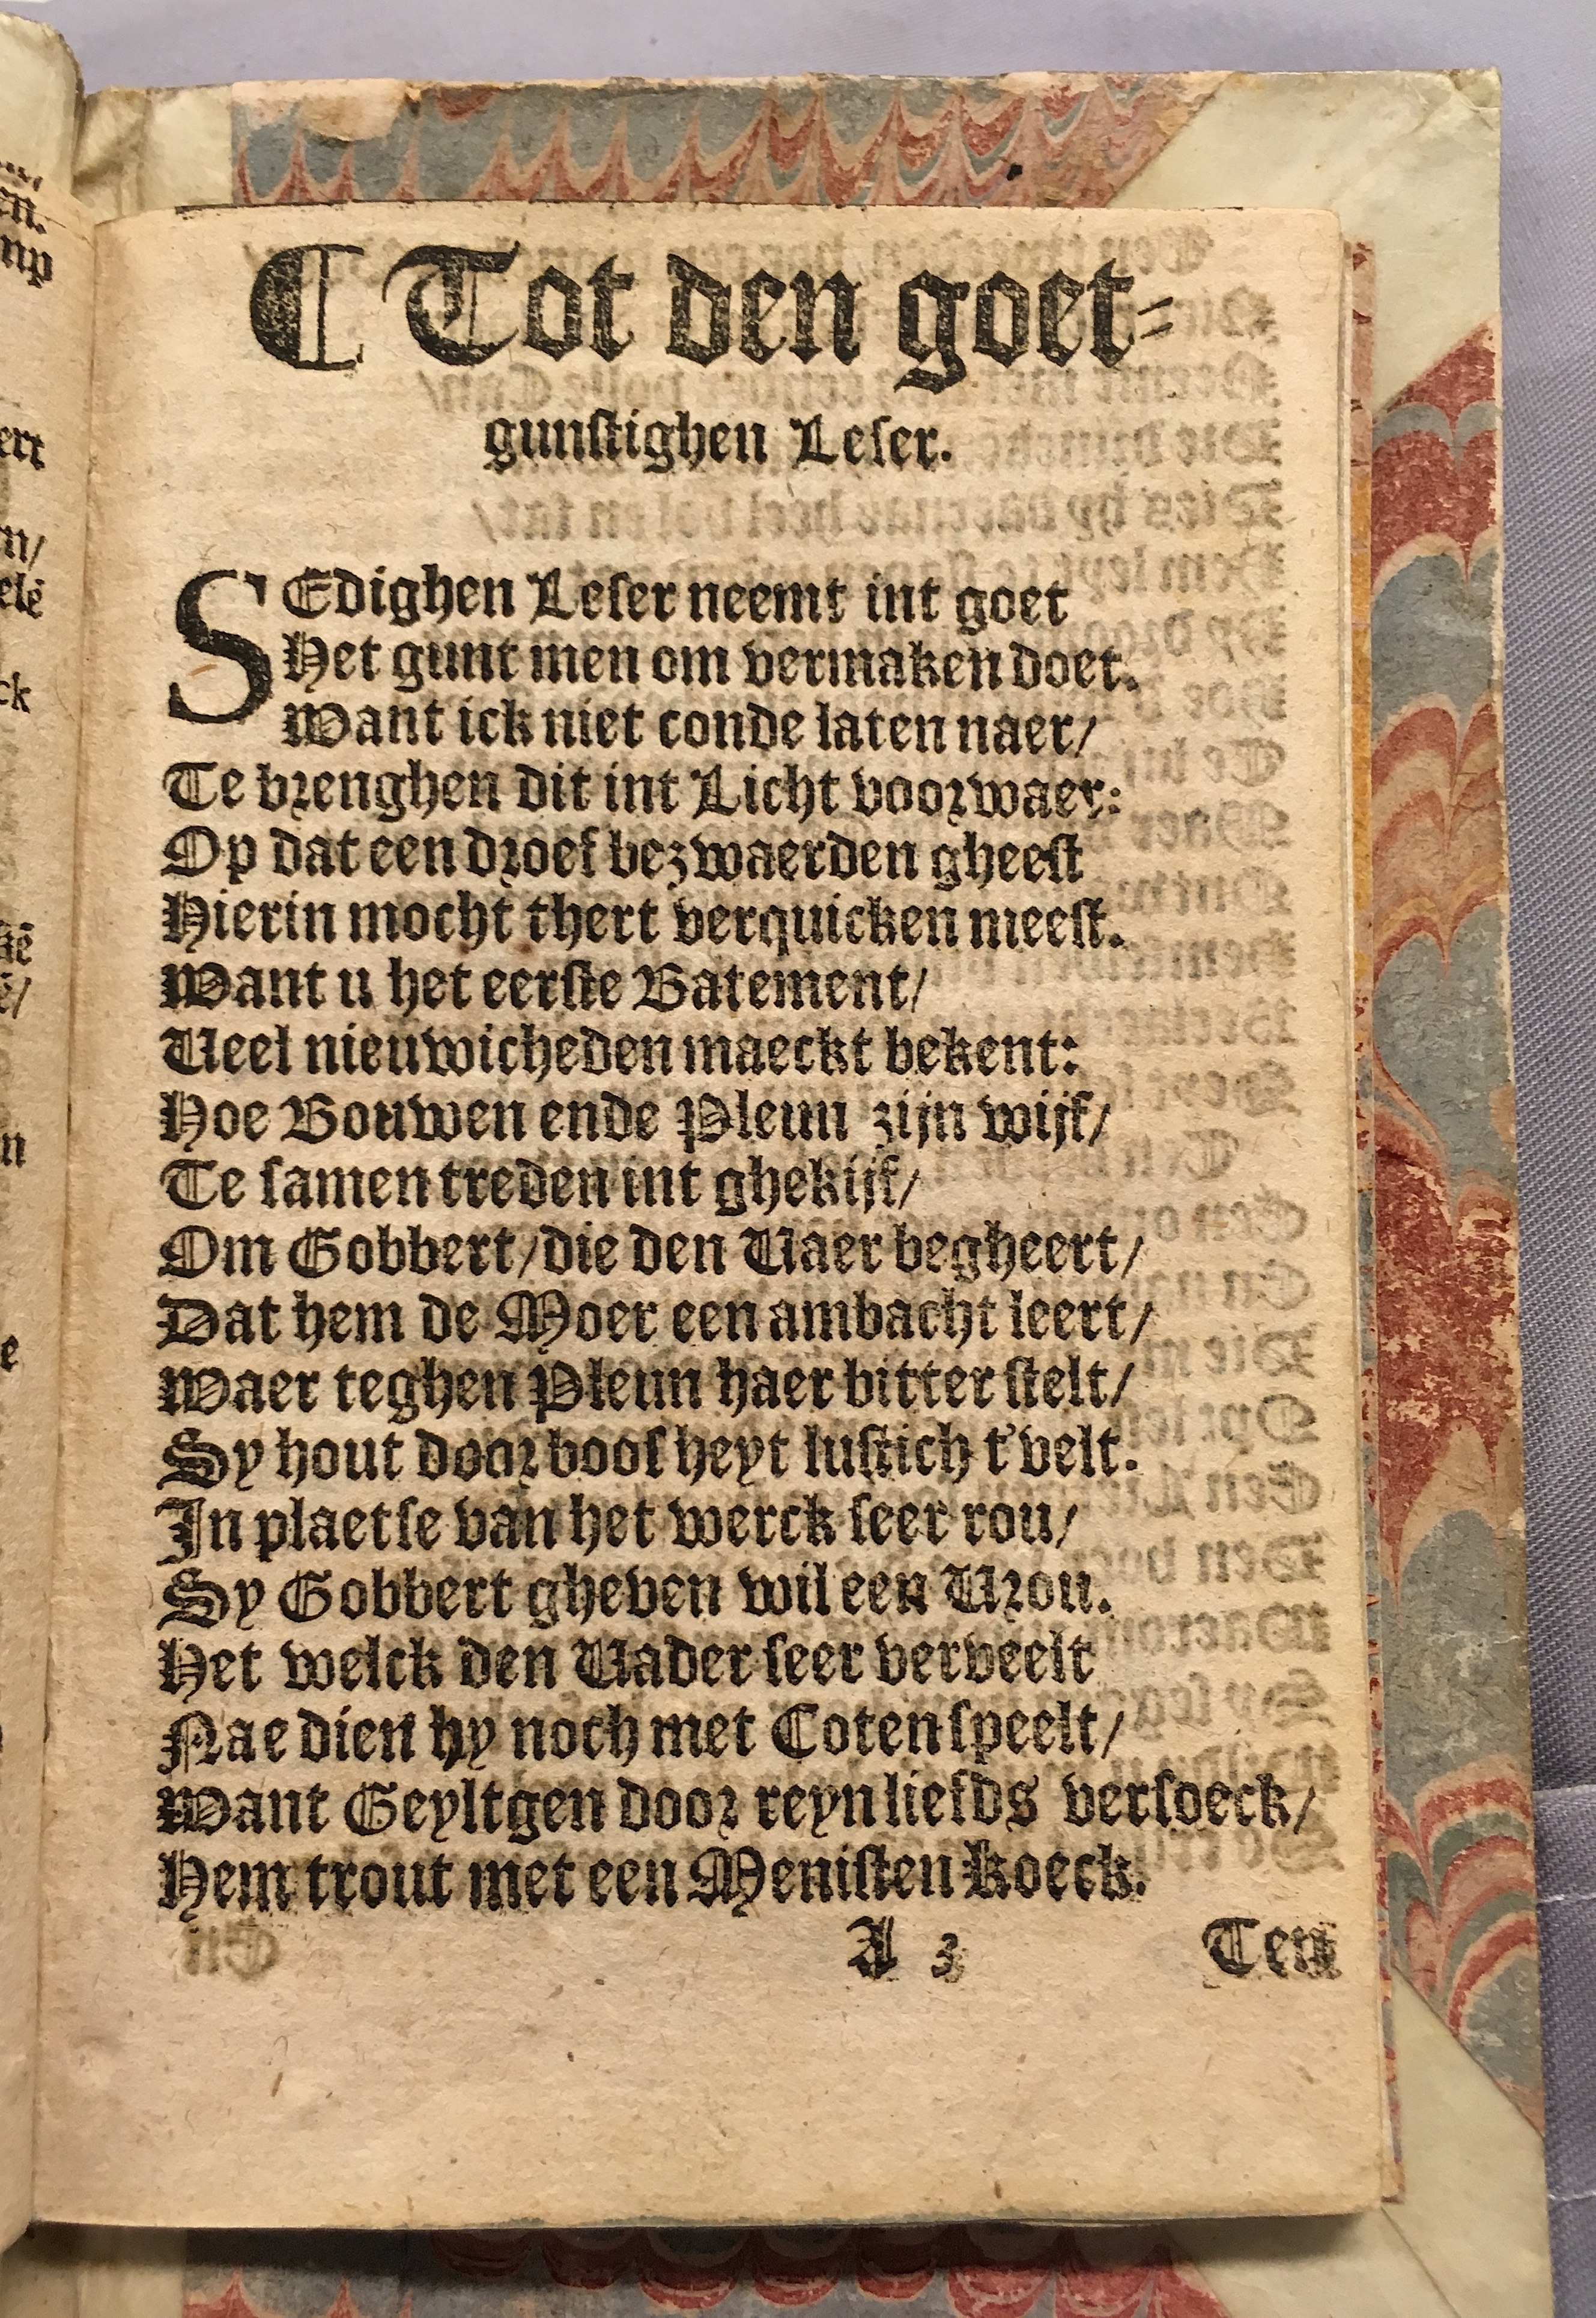 ¶ Tot den goet-
gunstighen Leser.
SEdighen Leser neemt int goet
Het gunt men om vermaken doet.
Want ick niet conde laten naer/
Te brenghen dit int Licht voorwaer:
Op dat een droef bezwaerden gheest
Hierin mocht thert verquicken meest.
Want u het eerste Batement/
Veel nieuwicheden maeckt bekent:
Hoe Bouwen ende Pleun zijn wijf/
Te samen treden int ghekijf/
Om Gobbert/die den Vaer begheert/
Dat hem de Moer een ambacht leert/
Waer teghen Pleun haer bitter stelt/
Sy hout door boosheyt lustich t'velt.
In plaetse van het werck seer rou/
Sy Gobbert gheven wil een Vrou.
Het welck den Vader seer verveelt
Nae dien hy noch met Coten speelt/
Want Geyltgen door reyn liefds versoeck/
Hem trout met een Menisten koeck.
A 3 Ten